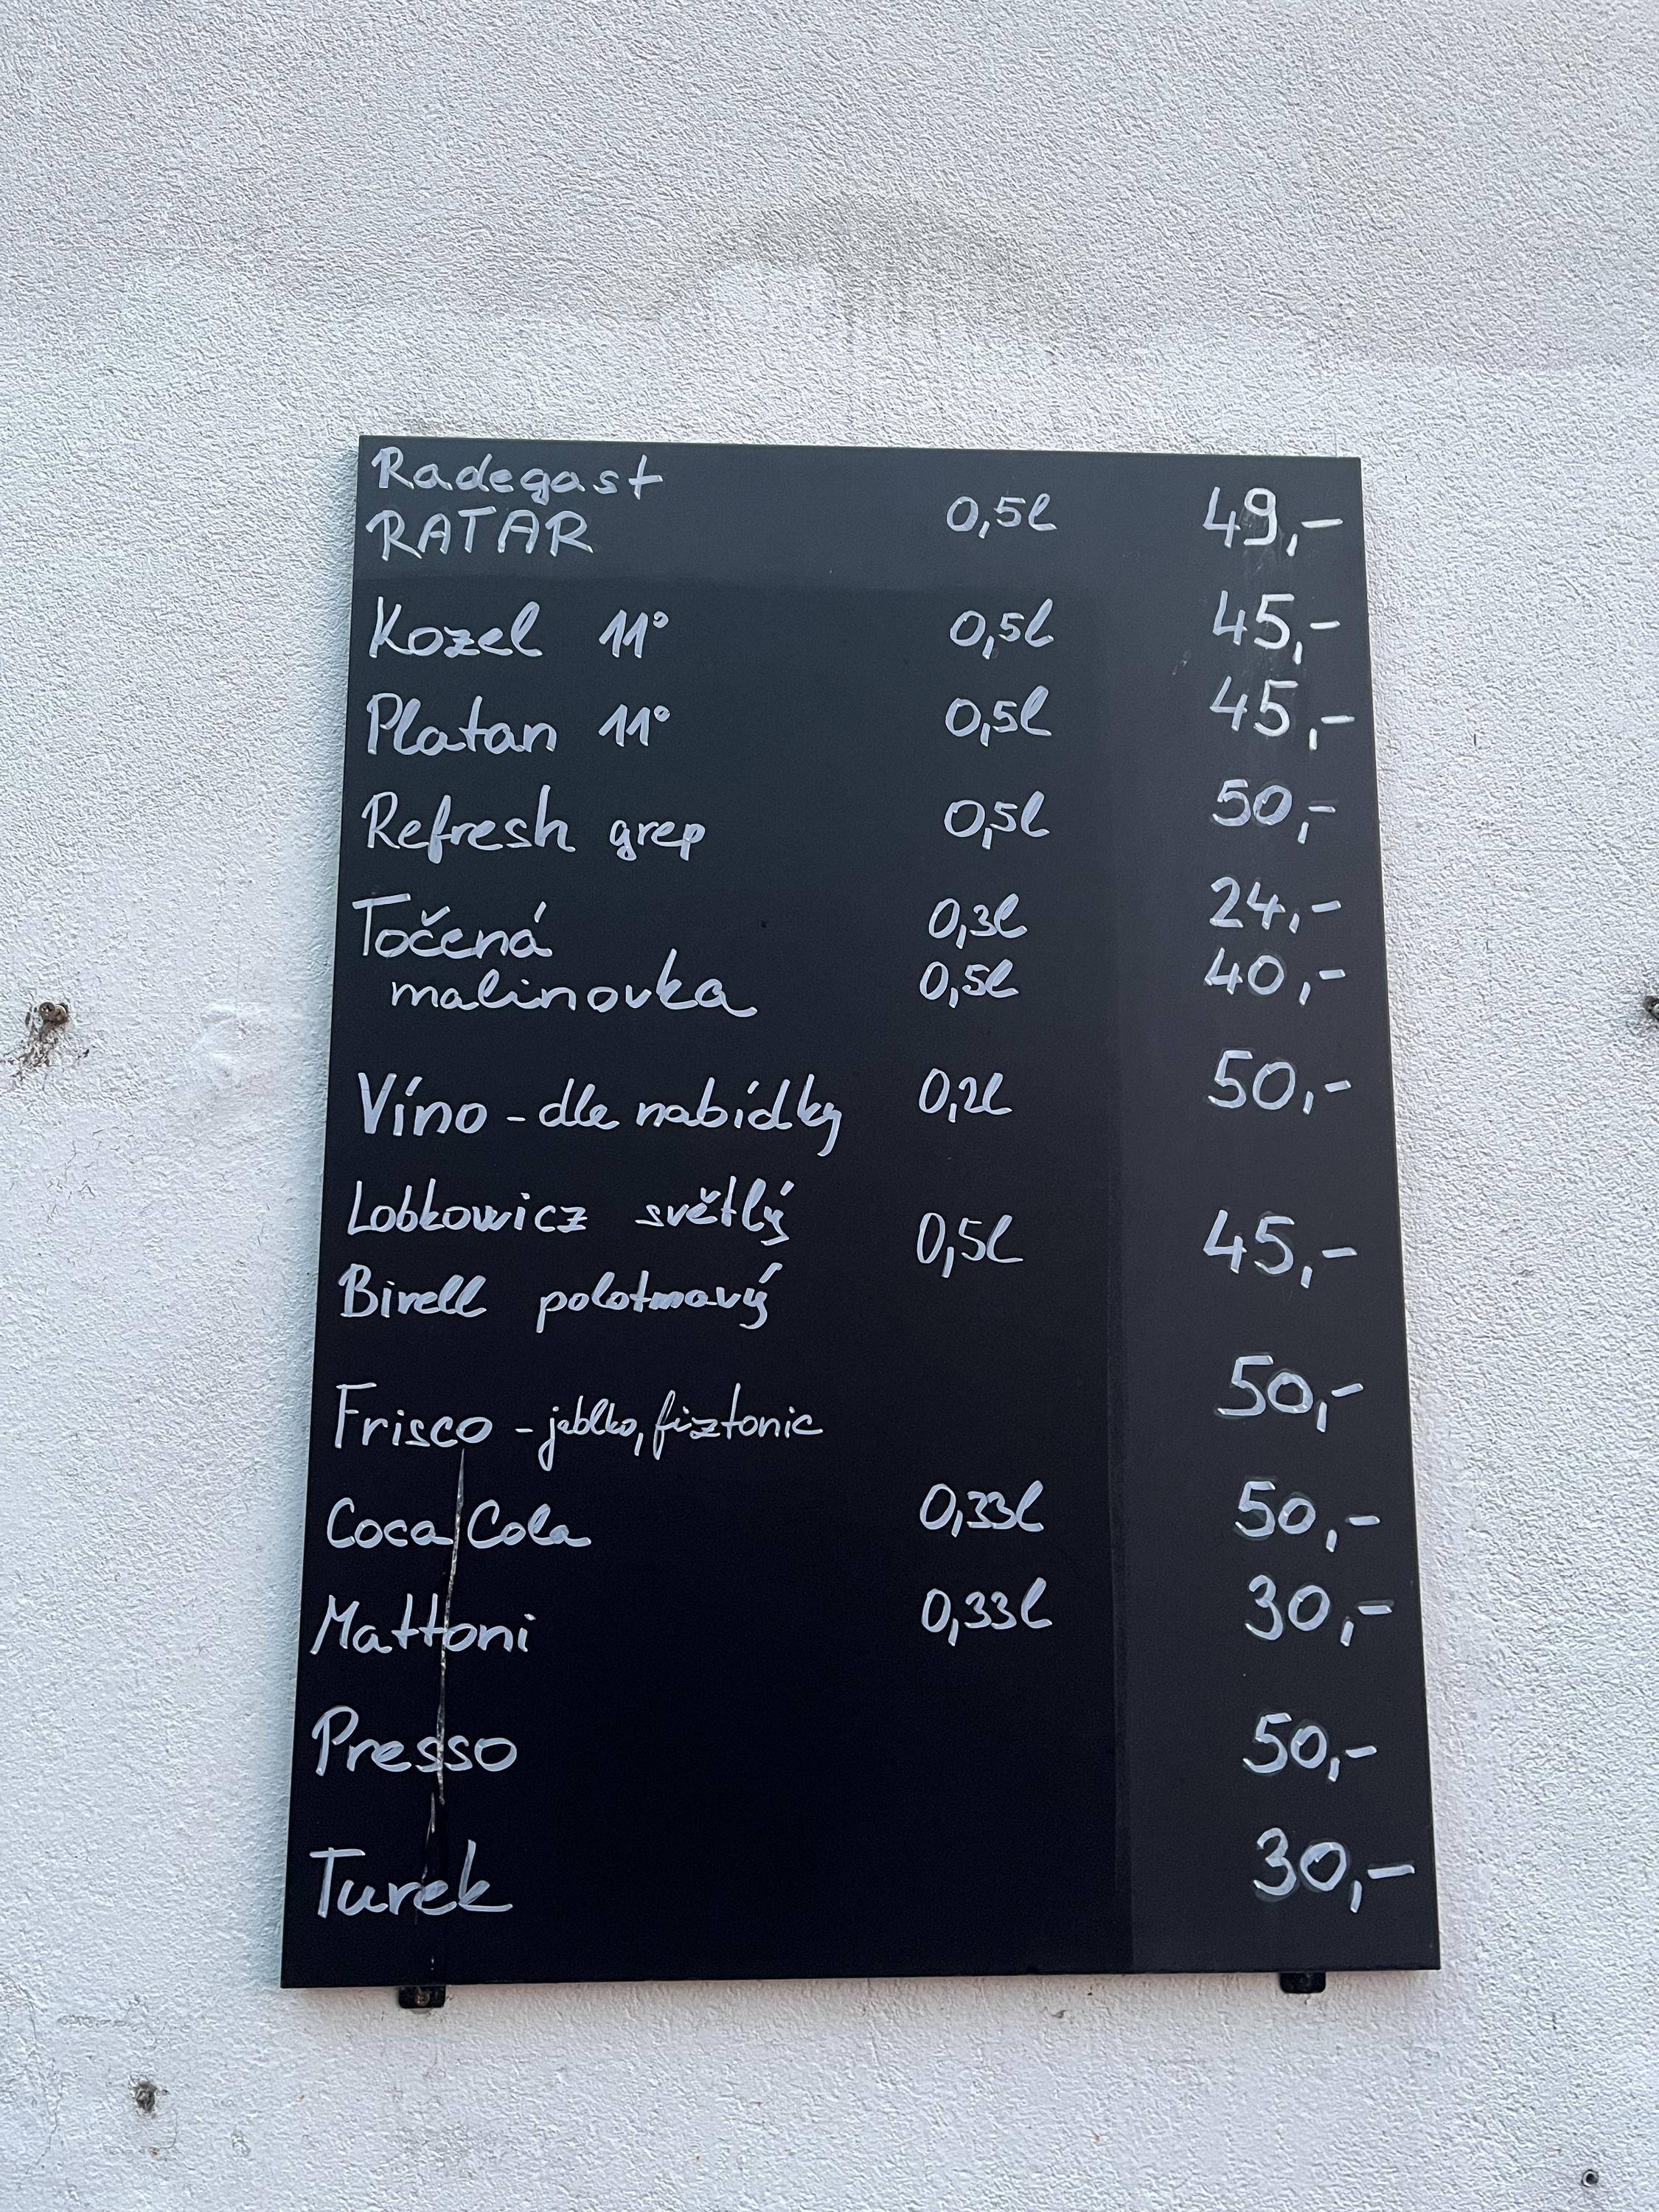 Radegast
RATAR 0,5l 49,-
Kozel 11° 0,5l 45,-
Platan 11° 0,5l 45,-
Refresh grep 0,5l 50,-
Točená 0,3l 24,-
malinovka 0,5l 40,-
Víno - dle nabídky 0,2l 50,-
Lobkowicz světlý
0,5l 45,-
Birell polotmavý
Frisco - jablko, fiztonic 50,-
Coca Cola 0,33l 50,-
Mattoni 0,33l 30,-
Presso 50,-
Turek 30,-